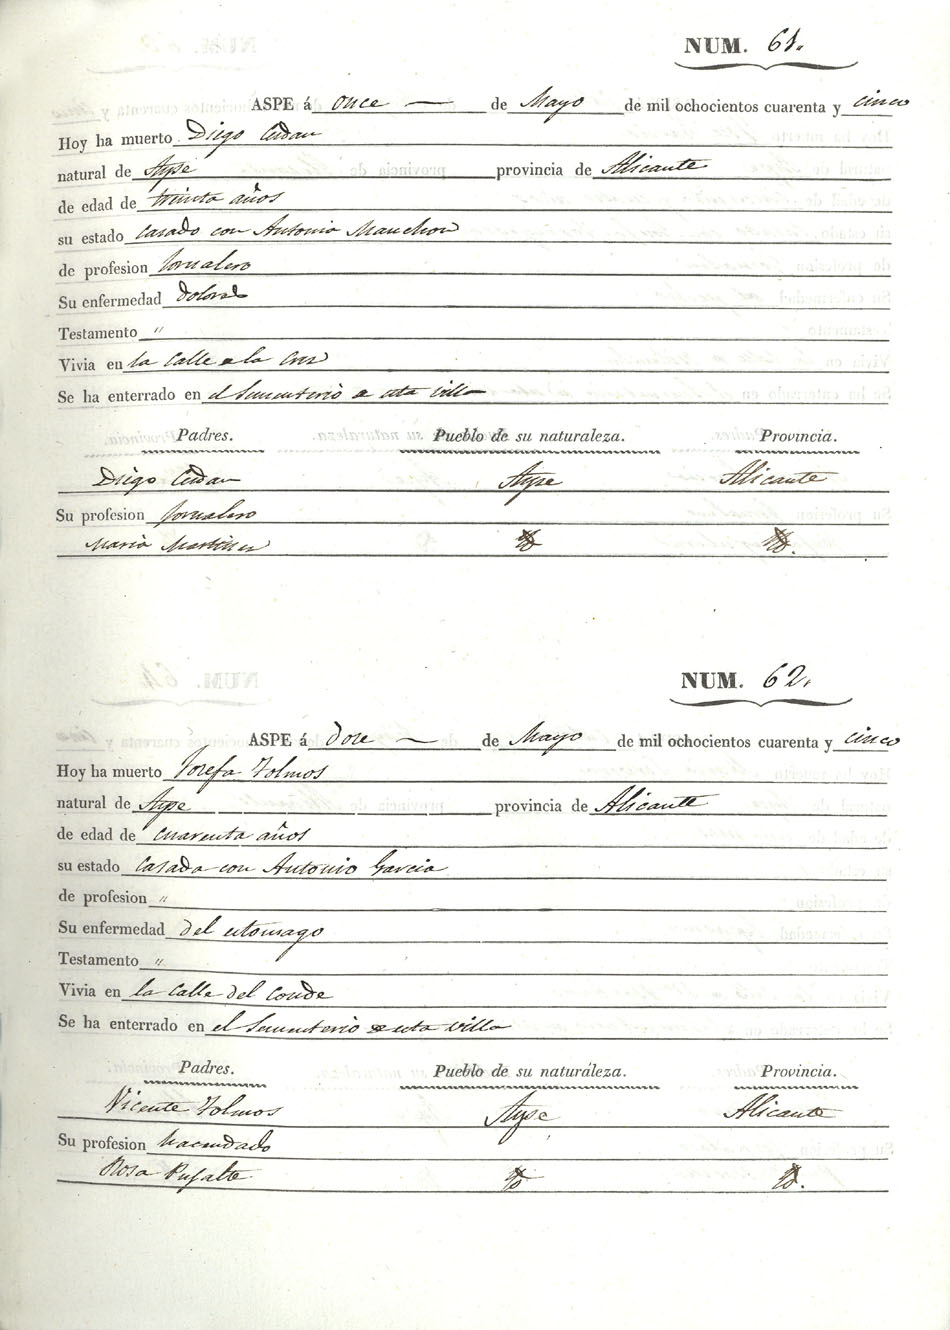 NUM. 61.
ASPE á once — de Mayo de mil ochocientos cuarenta y cinco
Hoy ha muerto Diego Cerdan
natural de Aspe provincia de Alicante
de edad de treinta años
su estado Casado con Antonia Manchon
de profesion Jornalero
Su enfermedad Dolores
Testamento "
Vivia en la Calle de la Cruz
Se ha enterrado en el Sementerio de esta villa
Padres. Pueblo de su naturaleza. Provincia.
Diego Cerdan Aspe Alicante
Su profesion Jornalero
Maria Martinez
NUM. 62.
ASPE á Doce — de Mayo de mil ochocientos cuarenta y cinco
Hoy ha muerto Josefa Tolmos
natural de Aspe provincia de Alicante
de edad de cuarenta años
su estado Casada con Antonio Garcia
de profesion "
Su enfermedad del estomago
Testamento "
Vivia en la Calle del Conde
Se ha enterrado en el Sementerio de esta villa
Padres. Pueblo de su naturáleza. Provincia.
Vicente Tolmos Aspe Alicante
Su profesion Hacendado
Rosa Pujalte